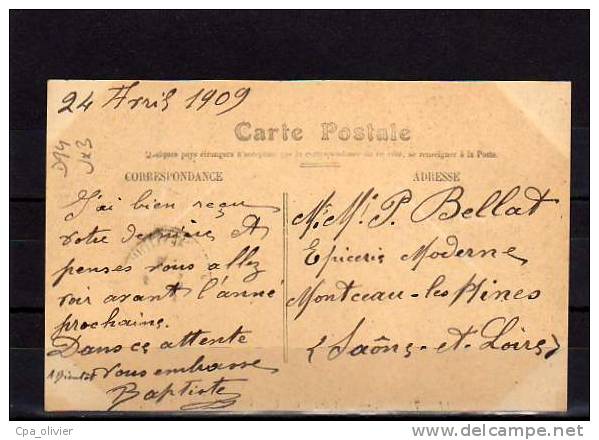 24 Avril 1909
D14
Carte Postale
Quelques pays étrangers n'acceptent pas la correspondance de ce côté, se renseigner à la Poste.
CORRESPONDANCE
ADRESSE
J'ai bien reçu
votre dernière Et
penses vous allez
voir avant l'anné
prochaine.
Dans ce attente
Vous embrasse
A Bientot
Baptiste
M. Mr P. Bellat
Epicerie Moderne
Montceau-les-Mines
(Saône-et-Loire)
Cpa_olivier
delcampe.net